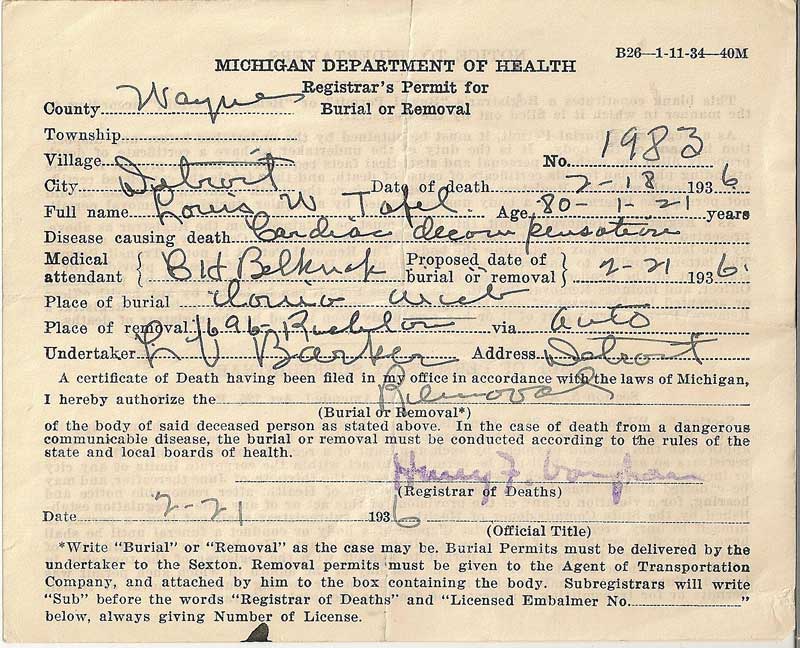 B26—1-11-34—40M
MICHIGAN DEPARTMENT OF HEALTH
Registrar's Permit for
Burial or Removal
County Wayne
Township
Village
No. 1983
City Detroit Date of death 2-18 1936
Full name Louis W Tafel. Age 80-1-21 years
Disease causing death Cardiac decompensation
Medical attendant } C H Belknap { Proposed date of burial or removal } 2-21 1936
Place of burial Ionia Mich
Place of removal 1696 via auto
Undertaker L V Barker Address Detroit
A certificate of Death having been filed in my office in accordance with the laws of Michigan,
I hereby authorize the Removal
(Burial or Removal*)
of the body of said deceased person as stated above. In the case of death from a dangerous
communicable disease, the burial or removal must be conducted according to the rules of the
state and local boards of health.
Henry F. Vaughan
(Registrar of Deaths)
Date 2-21 1936
(Official Title)
*Write "Burial" or "Removal" as the case may be. Burial Permits must be delivered by the
undertaker to the Sexton. Removal permits must be given to the Agent of Transportation
Company, and attached by him to the box containing the body. Subregistrars will write
"Sub" before the words "Registrar of Deaths" and "Licensed Embalmer No. "
below, always giving Number of License.